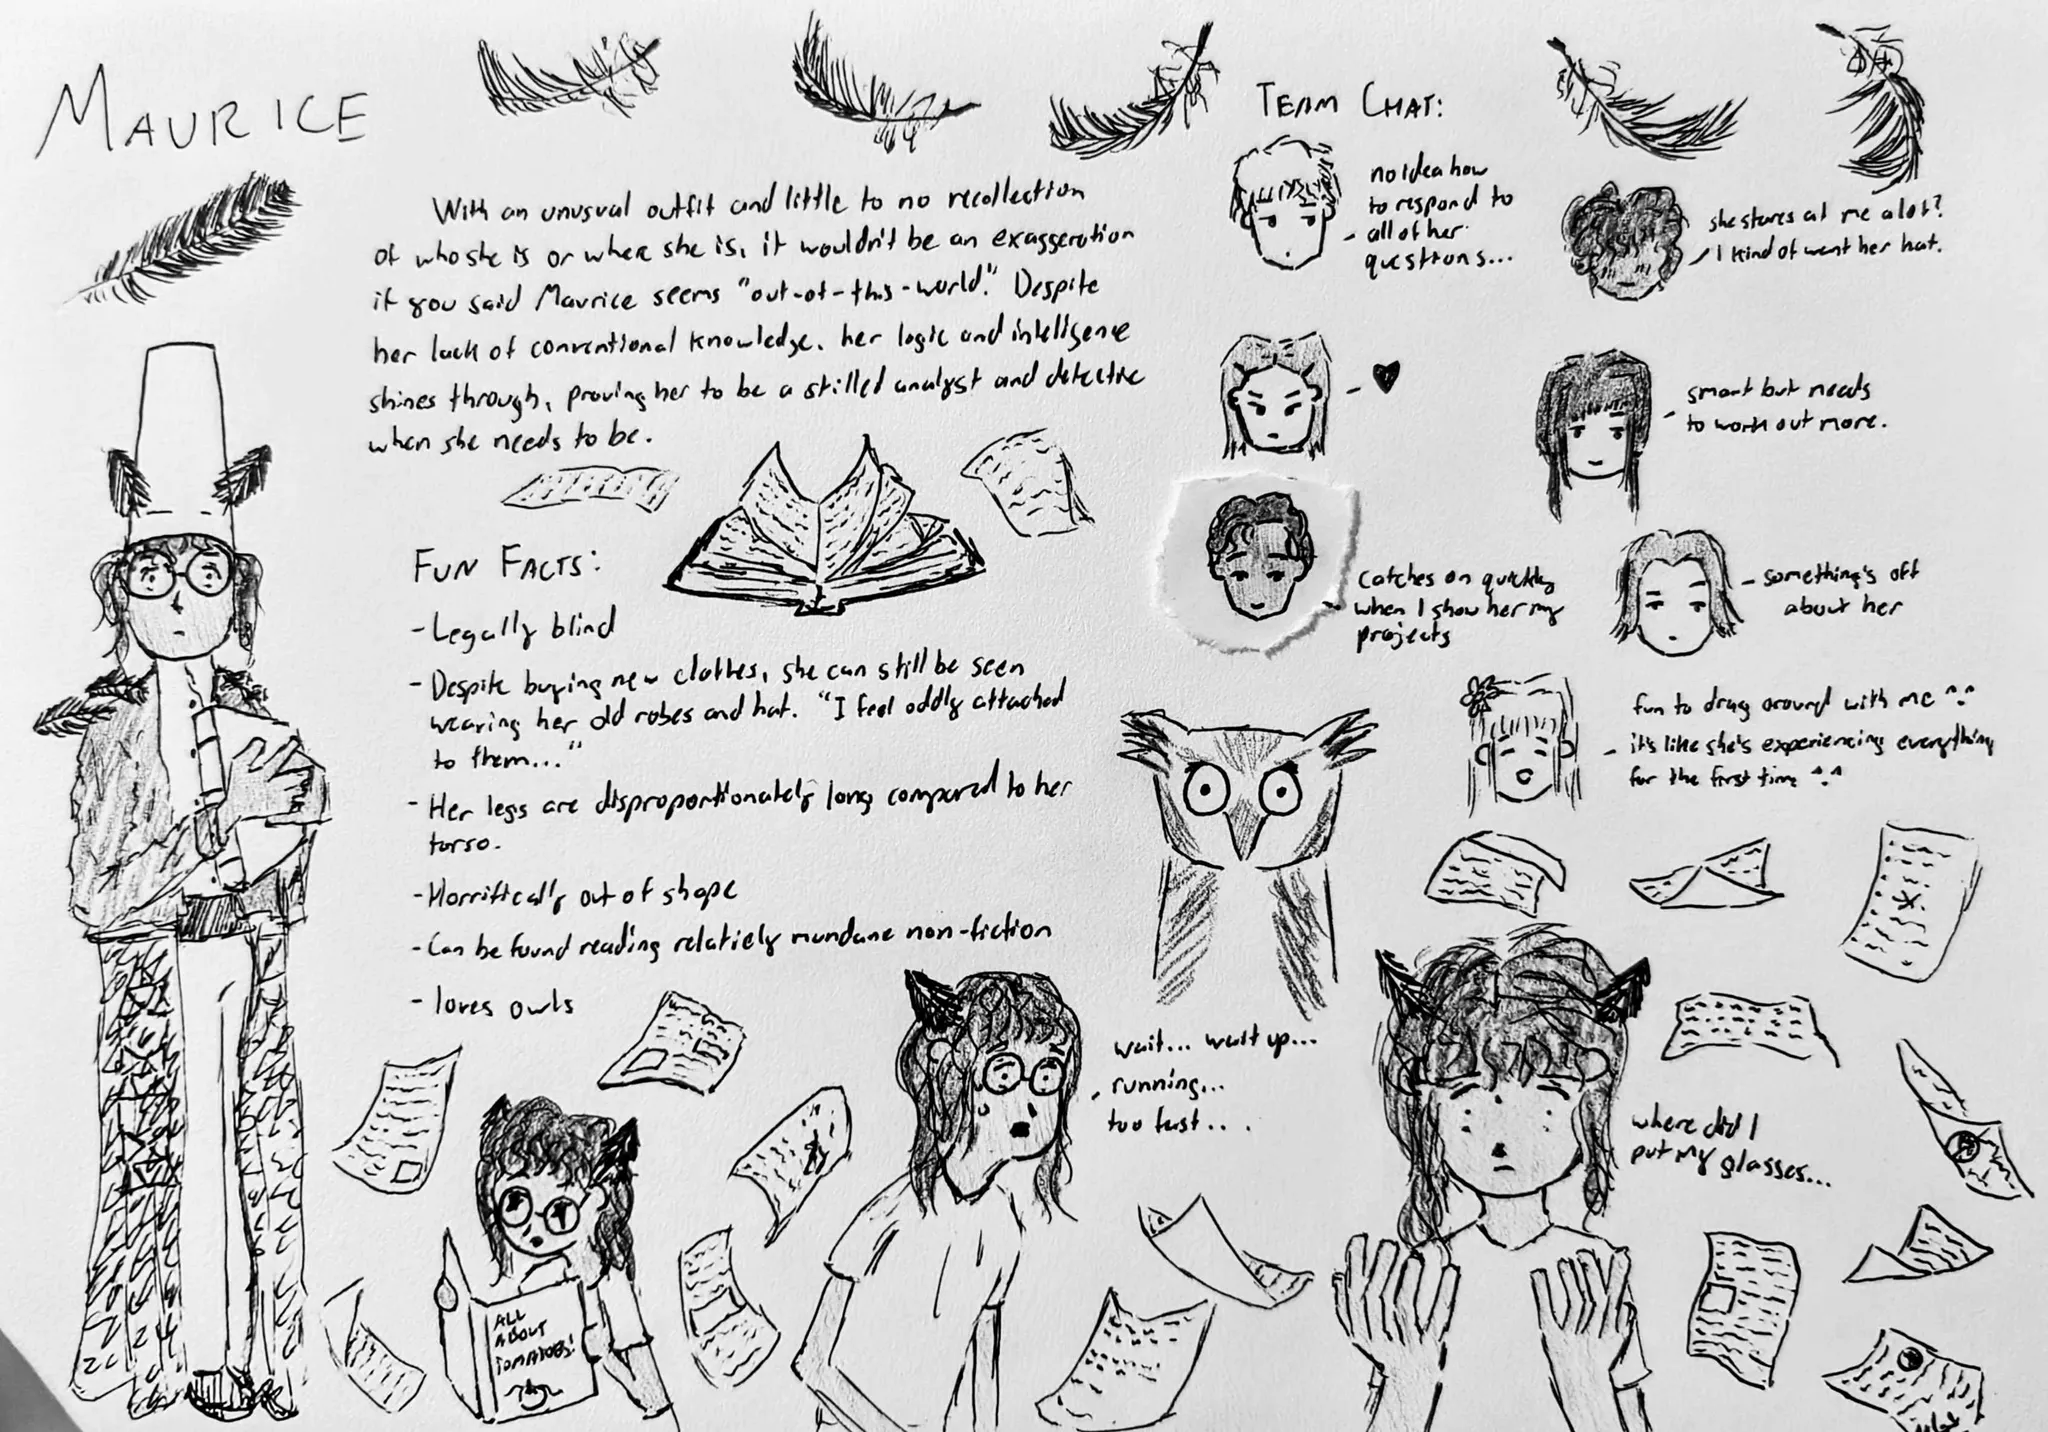 MAURICE
With an unusual outfit and little to no recollection
of who she is or where she is, it wouldn't be an exaggeration
if you said Maurice seems "out-of-this-world." Despite
her lack of conventional knowledge, her logic and intelligence
shines through, proving her to be a stilled analyst and detective
when she needs to be.
FUN FACTS:
- Legally blind
- Despite buying new clothes, she can still be seen
wearing her old robes and hat. "I feel oddly attached
to them..."
- Her legs are disproportionately long compared to her
torso.
- Horrifically out of shape
- Can be found reading relatiely mundane non-fiction
- loves owls
ALL
ABOUT
TOMATOES!
wait... wait up...
running...
too fast...
where did I
put my glasses...
TEAM CHAT:
no idea how
to respond to
all of her
questions...
she stares at me a lot?
I kind of want her hat.
smart but needs
to work out more.
catches on quickly
when I show her my
projects
something's off
about her
fun to drag around with me ^^
it's like she's experiencing everything
for the first time ^^